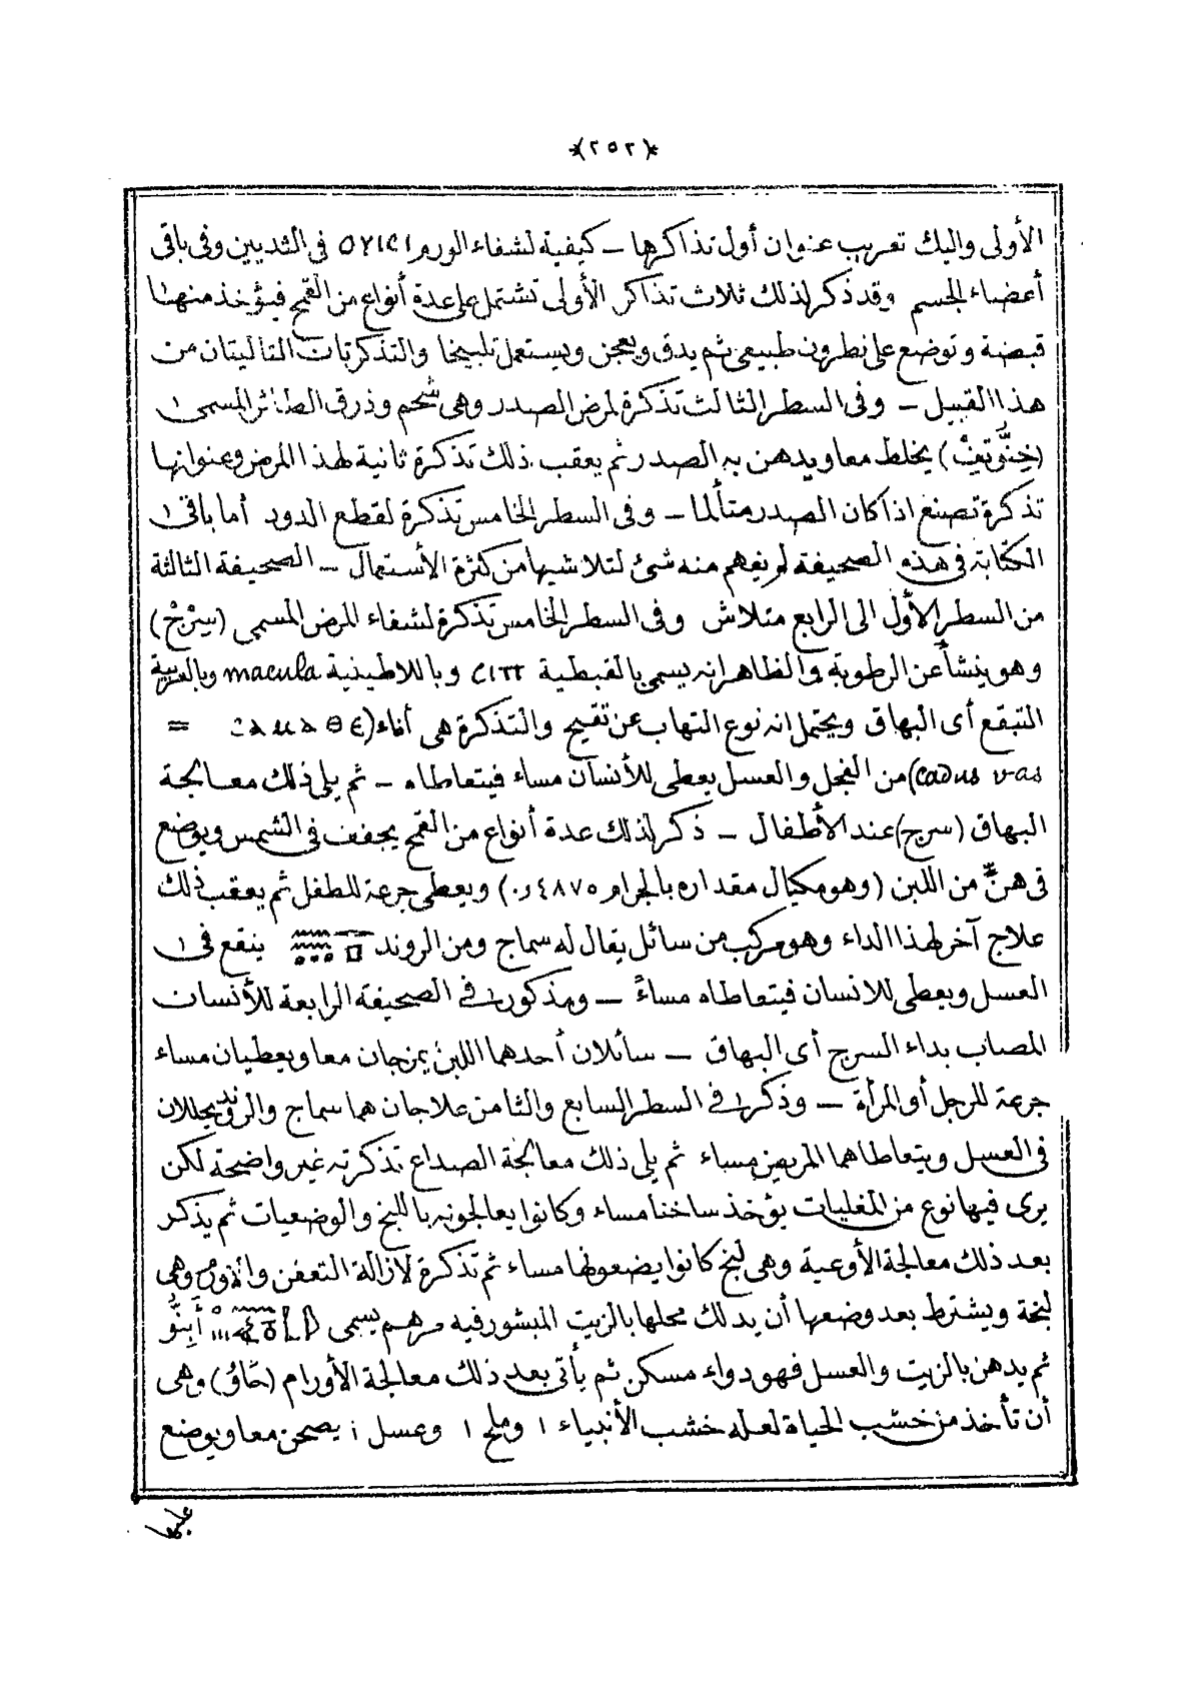 *(٢٥٢)*
الأولى واليك تعريب عنوان أول تذاكرها – كيفية لشفاء الورم في الثديين وفى باقى
أعضاء الجسم وقد ذكر لذلك ثلاث تذاكر الأولى تشتمل على عدة أنواع من القمح فيؤخذ منها
قبضة وتوضع على نطرون طبيعى ثم يدق ويعجن ويستعمل تلبيخا والتذكرتان التاليتان من
هذا القبيل – وفى السطر الثالث تذكرة لمرض الصدر وهى شحم وذرق الطائر المسمى
(خِنُّوتِفِتْ) يخلط معا ويدهن به الصدر ثم يعقب ذلك تذكرة ثانية لهذا المرض وعنوانها
تذكرة تصنع اذا كان الصدر متألما – وفى السطر الخامس تذكرة لقطع الدود أما باقى
الكتابة فى هذه الصحيفة لم يفهم منه شئ لتلاشيها من كثرة الأستعمال – الصحيفة الثالثة
من السطر الأول الى الرابع متلاش وفى السطر الخامس تذكرة لشفاء المرض المسمى (سِرْجْ)
وهو ينشأ عن الرطوبة والظاهر انه يسمى بالقبطية ⲥⲓⲧⲧ وباللاطينية macula وبالعربية
التبقع أى البهاق ويحتمل انه نوع التهاب عن تقيح والتذكرة هى أناء ( =
cadus vas) من الفجل والعسل يعطى للأنسان مساء فيتعاطاه – ثم يلى ذلك معالجة
البهاق (سرج) عند الأطفال – ذكر لذلك عدة أنواع من القمح يجفف فى الشمس ويوضع
فى هنّ من اللبن (وهو مكيال مقداره بالجرام ٤٨٧٥ر٠) ويعطى جرعة للطفل ثم يعقب ذلك
علاج آخر لهذا الداء وهو مركب من سائل يقال له سماج ومن الروند ينقع فى
العسل ويعطى للانسان فيتعاطاه مساءً – ومذكور فى الصحيفة الرابعة للأنسان
المصاب بداء السرج أى البهاق – سائلان أحدهما اللبن يمزجان معا ويعطيان مساء
جرعة للرجل أو المرأة – وذكر فى السطر السابع والثامن علاجان هما سماج والروند يحللان
فى العسل ويتعاطاهما المريض مساء ثم يلى ذلك معالجة الصداع تذكرته غير واضحة لكن
يرى فيها نوع من المغليات يؤخذ ساخنا مساء وكانوا يعالجونه باللبخ والوضعيات ثم يذكر
بعد ذلك معالجة الأوعية وهى لبخ كانوا يضعونها مساء ثم تذكرة لازالة التعفن والاورام وهى
لبخة ويشترط بعد وضعها أن يدلك محلها بالزيت المبشور فيه مرهم يسمى أَبِنُّو
ثم يدهن بالزيت والعسل فهو دواء مسكن ثم يأتى بعد ذلك معالجة الأورام (حَاوُ) وهى
أن تأخذ من خشب الحياة لعله خشب الأنبياء ١ وملح ١ وعسل ١ يصحن معا ويوضع
عليها